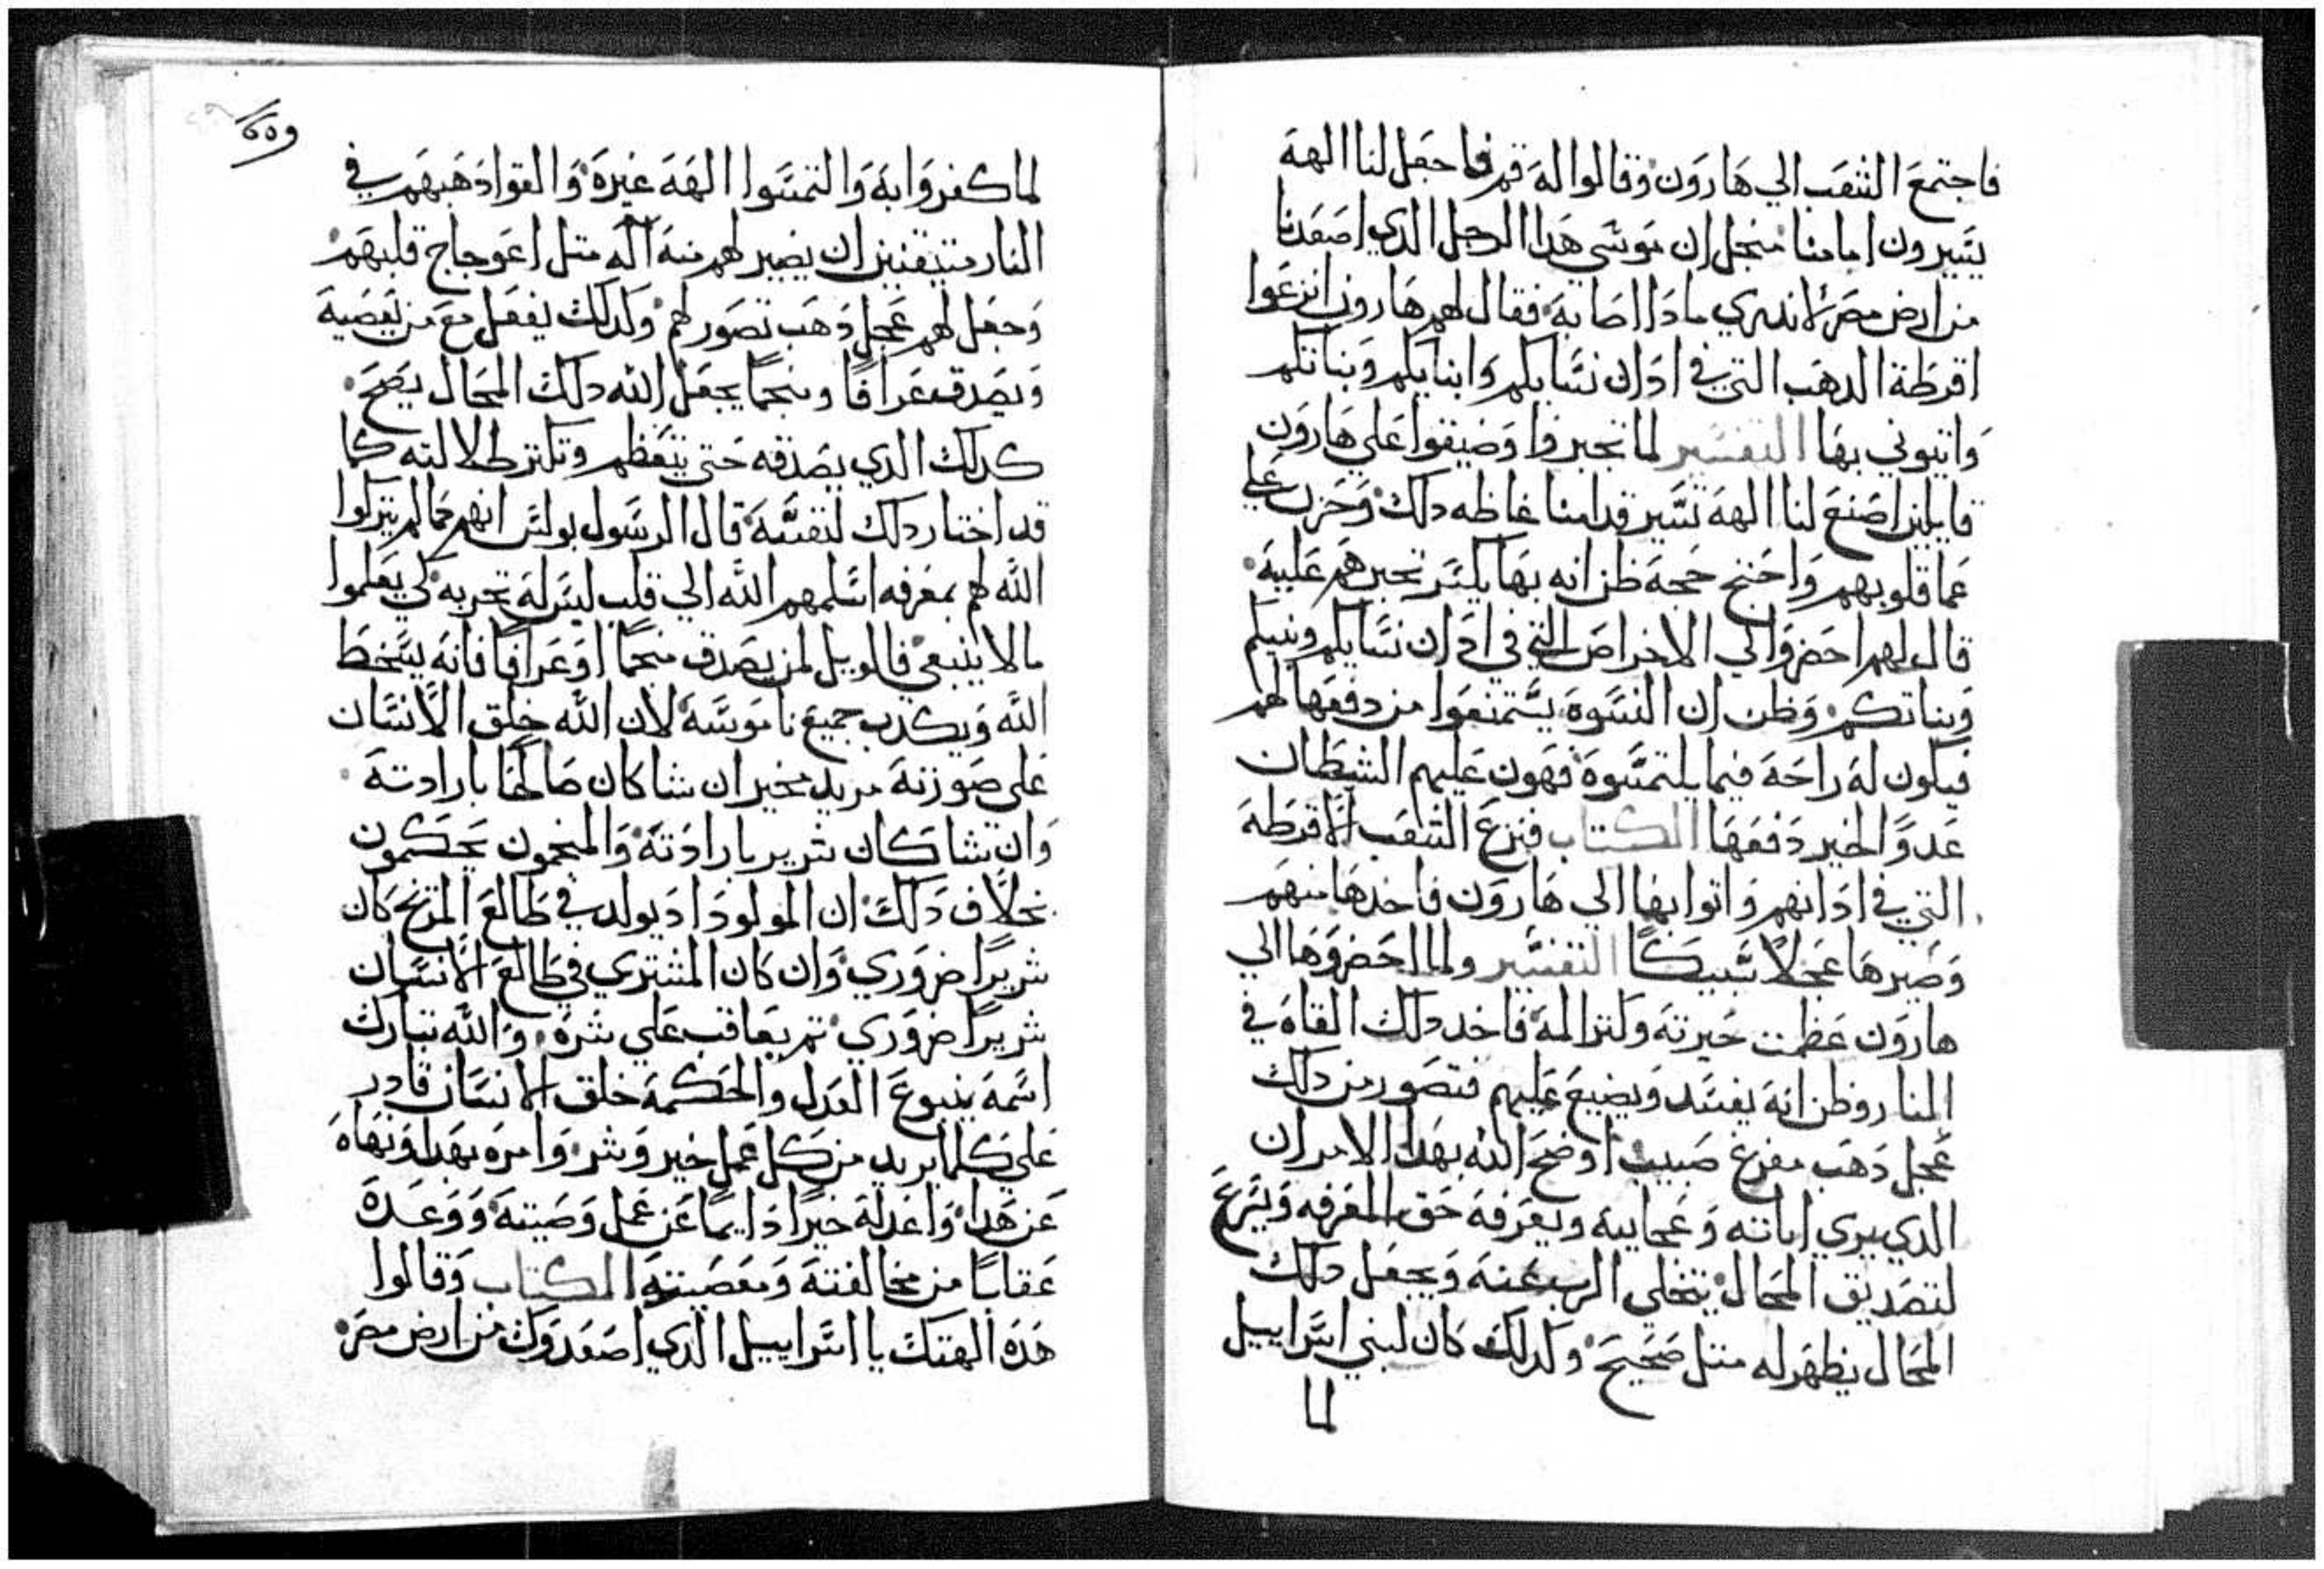 فاجتمع الشعب الي هارون وقالوا له قم فاجعل لنا الهة
يسيرون امامنا منجل ان موسي هدا الرجل الدي اصعدنا
من ارض مصر لا ندري مادا اصابه فقال لهم هارون انزعوا
اقرطة الدهب التي في ادان نسايكم وابنايكم وبناتكم
واتيوني بها التفسير لما تجبروا وضيقوا علي هارون
قايلين اصنع لنا الهة تسير قدامنا غاظه دلك وحزن علي
عما قلوبهم واحتج حجة ظن انه بها يكسر تجبرهم عليه
قال لهم احضروا لي الاخراص التي في ادان نسايكم وبنيكم
وبناتكم وظن ان النسوة يستمنعوا من دفعها لهم
فيكون له راحة فيما يلتمسوه فهون عليهم الشيطان
عدو الخير دفعها الكتاب فنزع الشعب الاقرطة
التي في ادانهم واتوا بها الي هارون فاخدها منهم
وصيرها عجلا سبيكا التفسير ولما احضروها الي
هارون عظمت حيرته وكتر المه فاخد دلك القاه في
النار وظن انه يفسد ويضيع عليهم فتصور من دلك
عجل دهب مفرغ صبيب اوضح الله بهدا الامر ان
الدي يري اياته وعجايبه ويعرفه حق المعرفه ويسرع
لتصديق المحال يتخلي الرب عنه ويجعل دلك
المحال يظهر له متل صحيح وكدلك كان لبني اسراييل
لما
لما كفروا به والتمسوا الهة غيره والقوا دهبهم في
النار متيقنين ان يصير لهم منه اله متل اعوجاج قلبهم
وجعل لهم عجل دهب تصور لهم وكدلك يفعل مع من يعصيه
ويصدق عرافا ومنجما يجعل الله دلك المحال يصح
كدلك الدي يصدقه حتي يتعظم وتكتر ضلالته كما
قد اختار دلك لنفسه قال الرسول بولس انهم كما لم يتركوا
الله لهم بمعرفه اسلمهم الله الي قلب ليس له تجربه لكي يعلموا
ما لا ينبغي فالويل لمن يصدق منجما او عرافا فانه يسخط
الله ويكدب جميع ناموسه لان الله خلق الانسان
علي صورته مريد مخير ان شا كان صالحا بارادته
وان شا كان شرير بارادته والمنجمون يحكمون
بخلاف دلك ان المولود اد يولد في طالع المريخ كان
شريرا ضروري وان كان المشتري في طالع الانسان
شريرا ضروري تم يعاقب علي شره والله تبارك
اسمه ينبوع العدل والحكمة خلق الانسان قادر
علي كلما يريد من كل عمل خير وشر وامره بهدا ونهاه
عن هدا واعد له خيرا دايما عن عمل وصيته ووعده
عقابا من مخالفته ومعصيته الكتاب وقالوا
هده الهتك يا اسراييل الدي اصعدوك من ارض مصر